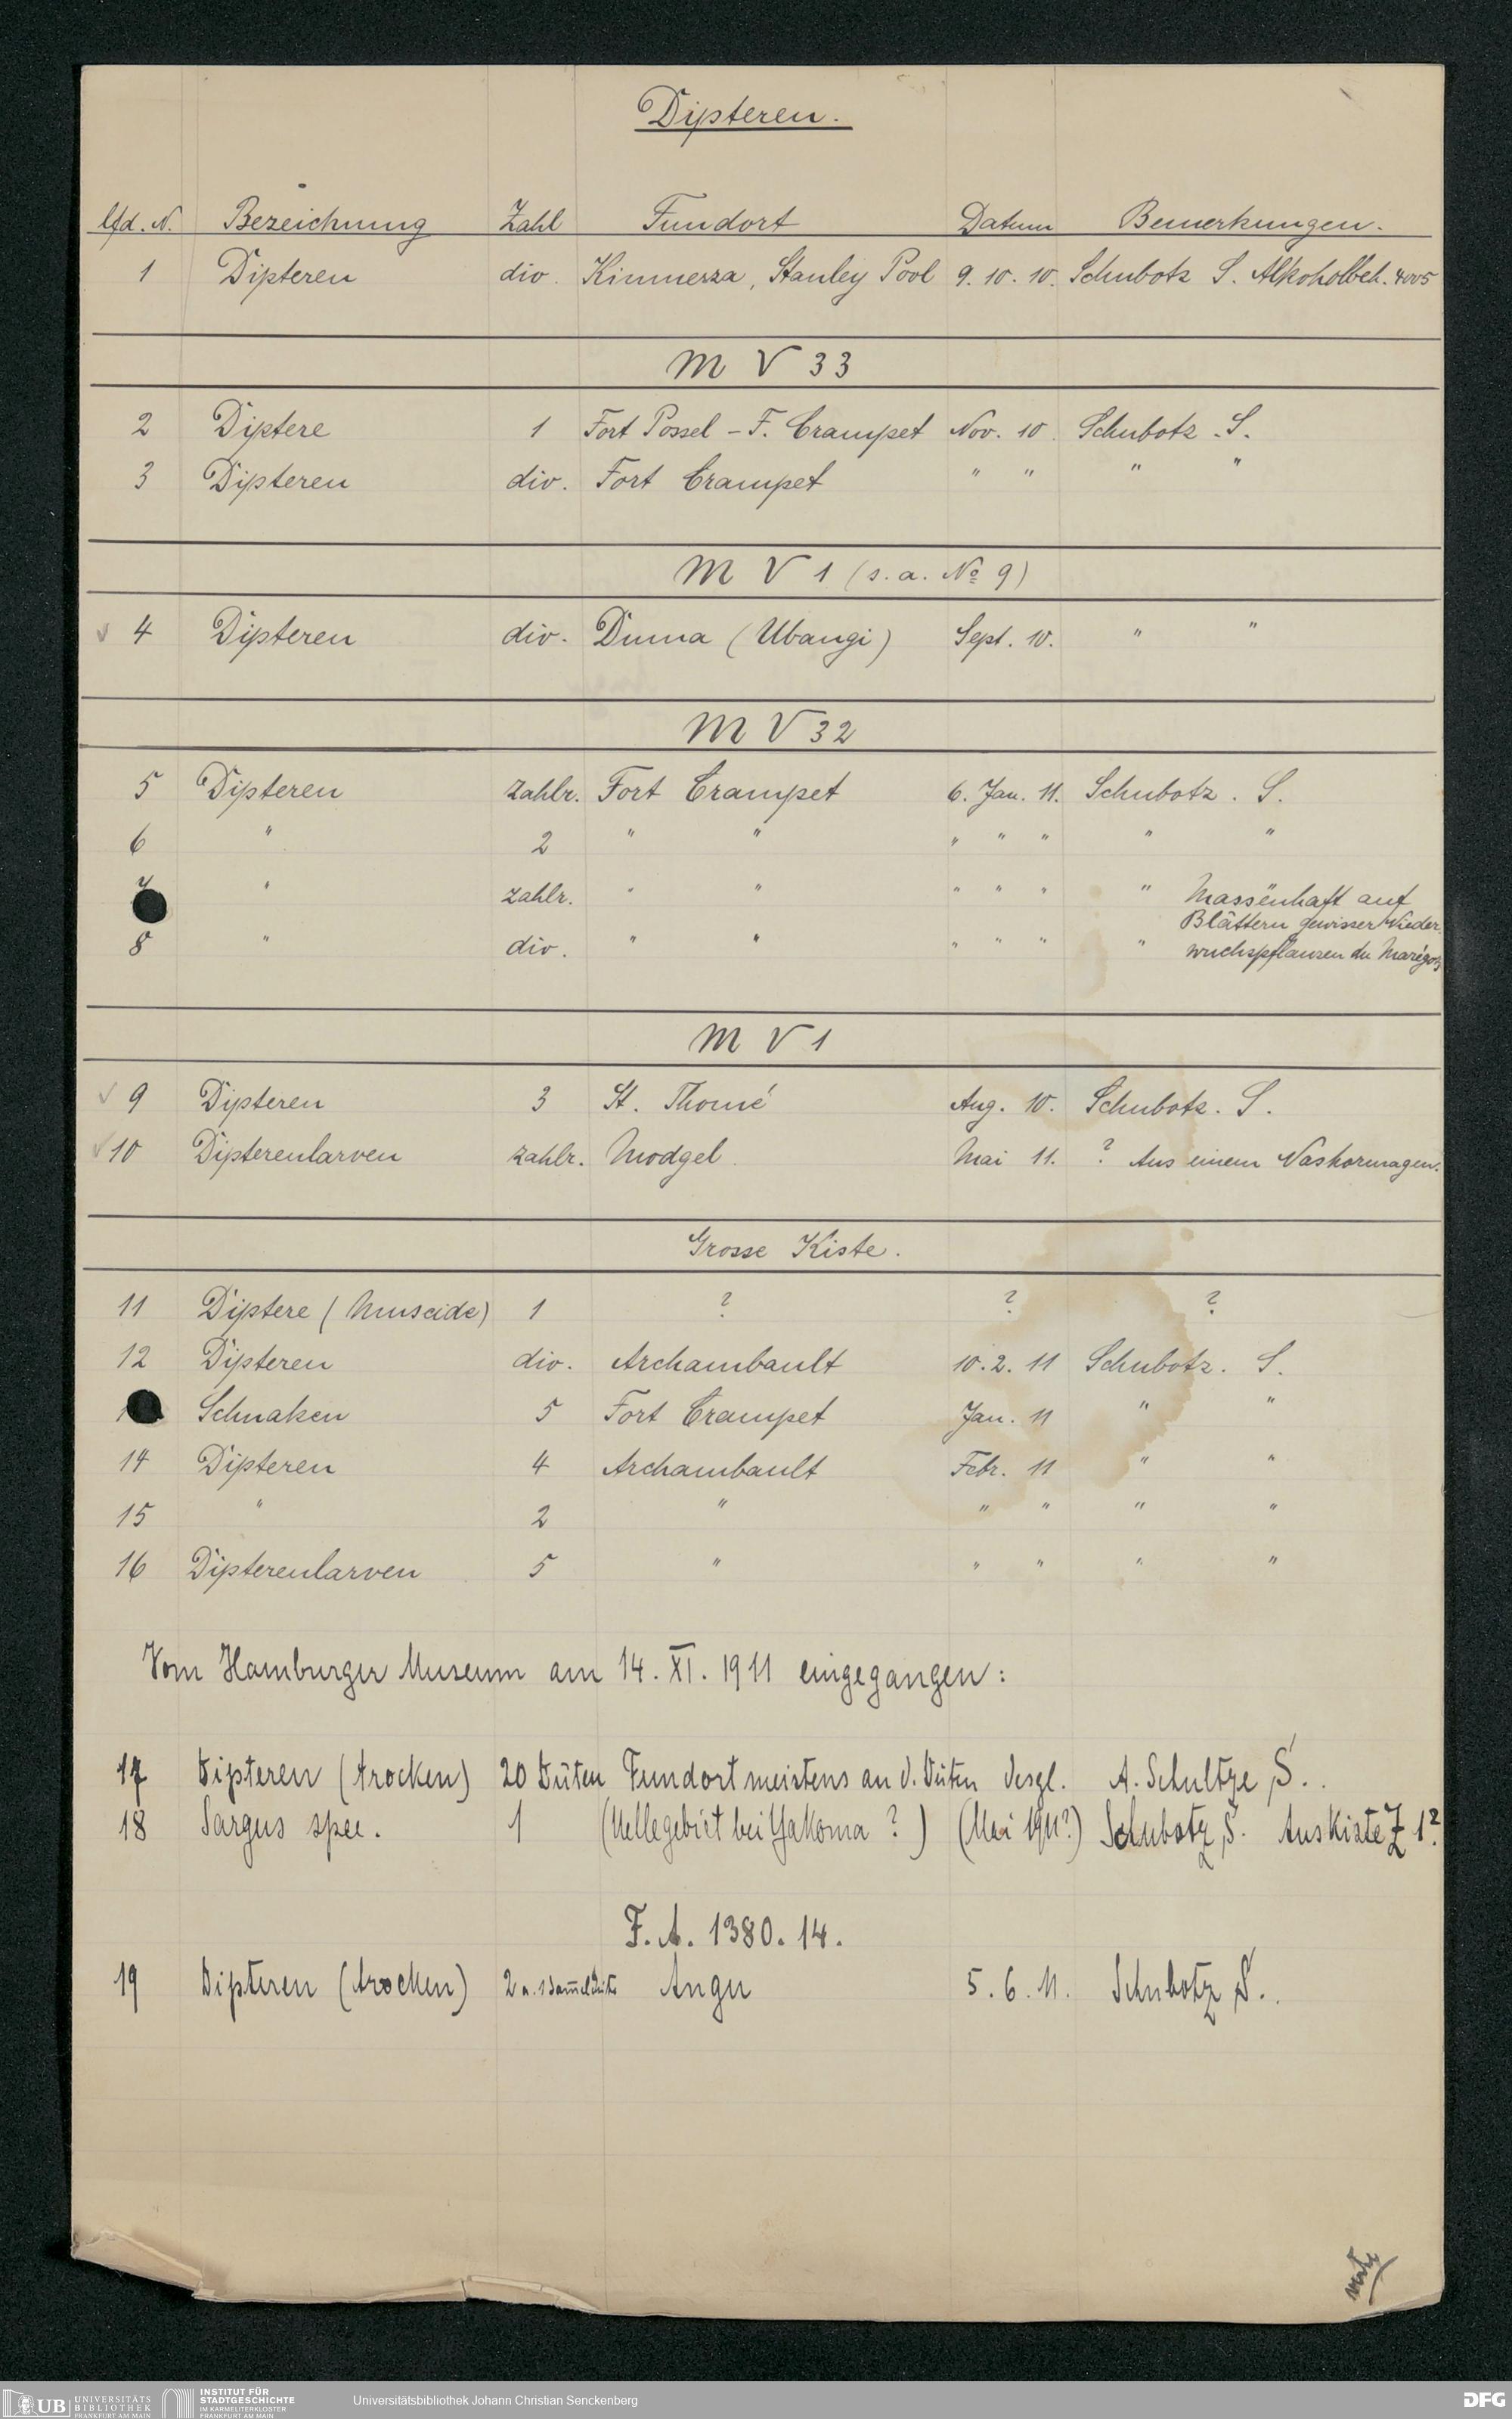 Dipteren.
lfd. N. Bezeichnung Zahl Fundort Datum Bemerkungen.
1 Dipteren div. Kimuenza, Stanley Pool 9. 10. 10. Schubotz S. Alkoholbeh. 4005
M V 33
2 Diptere 1 Fort Possel - F. Crampet Nov. 10. Schubotz. S.
3 Dipteren div. Fort Crampet " " " "
M V 1 (s. a. No 9)
4 Dipteren div. Duma (Ubangi) Sept. 10. " "
M V 32
5 Dipteren zahlr. Fort Crampet 6. Jan. 11. Schubotz. S.
6 " 2 " " " " " " "
7 " zahlr. " " " " " " Massenhaft auf
Blättern gewisser Nieder-
8 " div. " " " " " " wuchspflanzen der Marigots
M V 1
9 Dipteren 3 St. Thomé Aug. 10. Schubotz. S.
10 Dipterenlarven zahlr. Modgel Mai 11. ? Aus einem Nashornmagen.
Grosse Kiste.
11 Diptere (Muscide) 1 ? ? ?
12 Dipteren div. Archambault 10. 2. 11 Schubotz. S.
Schnaken 5 Fort Crampet Jan. 11 " "
14 Dipteren 4 Archambault Febr. 11 " "
15 " 2 " " " " "
16 Dipterenlarven 5 " " " " "
Vom Hamburger Museum am 14. XI. 1911 eingegangen:
17 Dipteren (trocken) 20 Düten Fundort meistens an d. Düten desgl. A. Schultze S.
18 Sargus spec. 1 (Uellegebiet bei Yakoma ?) (Mai 1911?) Schubotz S. Aus Kiste Z 1?
F. A. 1380. 14.
19 Dipteren (trocken) Angu 5. 6. 11. Schubotz S.
UB UNIVERSITÄTS
BIBLIOTHEK
FRANKFURT AM MAIN
INSTITUT FÜR
STADTGESCHICHTE
IM KARMELITERKLOSTER
FRANKFURT AM MAIN
Universitätsbibliothek Johann Christian Senckenberg
DFG